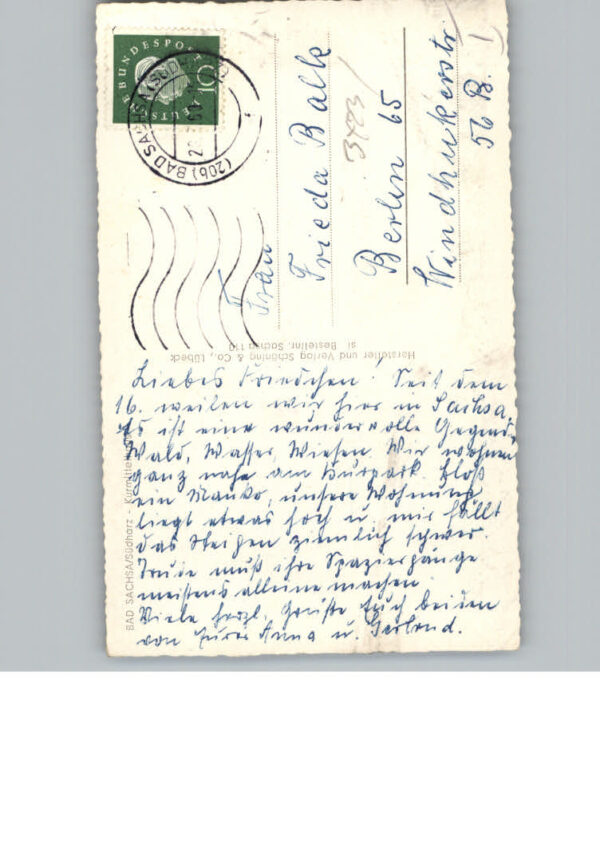 Liebes Friedchen! Seit dem
16. weilen wir hier in Sachsa.
Es ist eine wundervolle Gegend,
Wald, Wasser, Wiesen. Wir wohnen
ganz nahe am Kurpark. Bloß
ein Manko, unsere Wohnung
liegt etwas hoch u. mir fällt
das Steigen ziemlich schwer.
Trude muß ihre Spaziergänge
meistens alleine machen.
Viele herzl. Grüße Euch beiden
von Eurer Anna u.
Frau
Frieda Balk
3423
Berlin 65
Windhukerstr.
56 B.
DEUTSCHE BUNDESPOST
10
(20b) BAD SACHSA (SÜDHARZ)
Hersteller und Verlag Schöning & Co., Lübeck
Bestellnr. Sachsa 110
BAD SACHSA/Südharz -